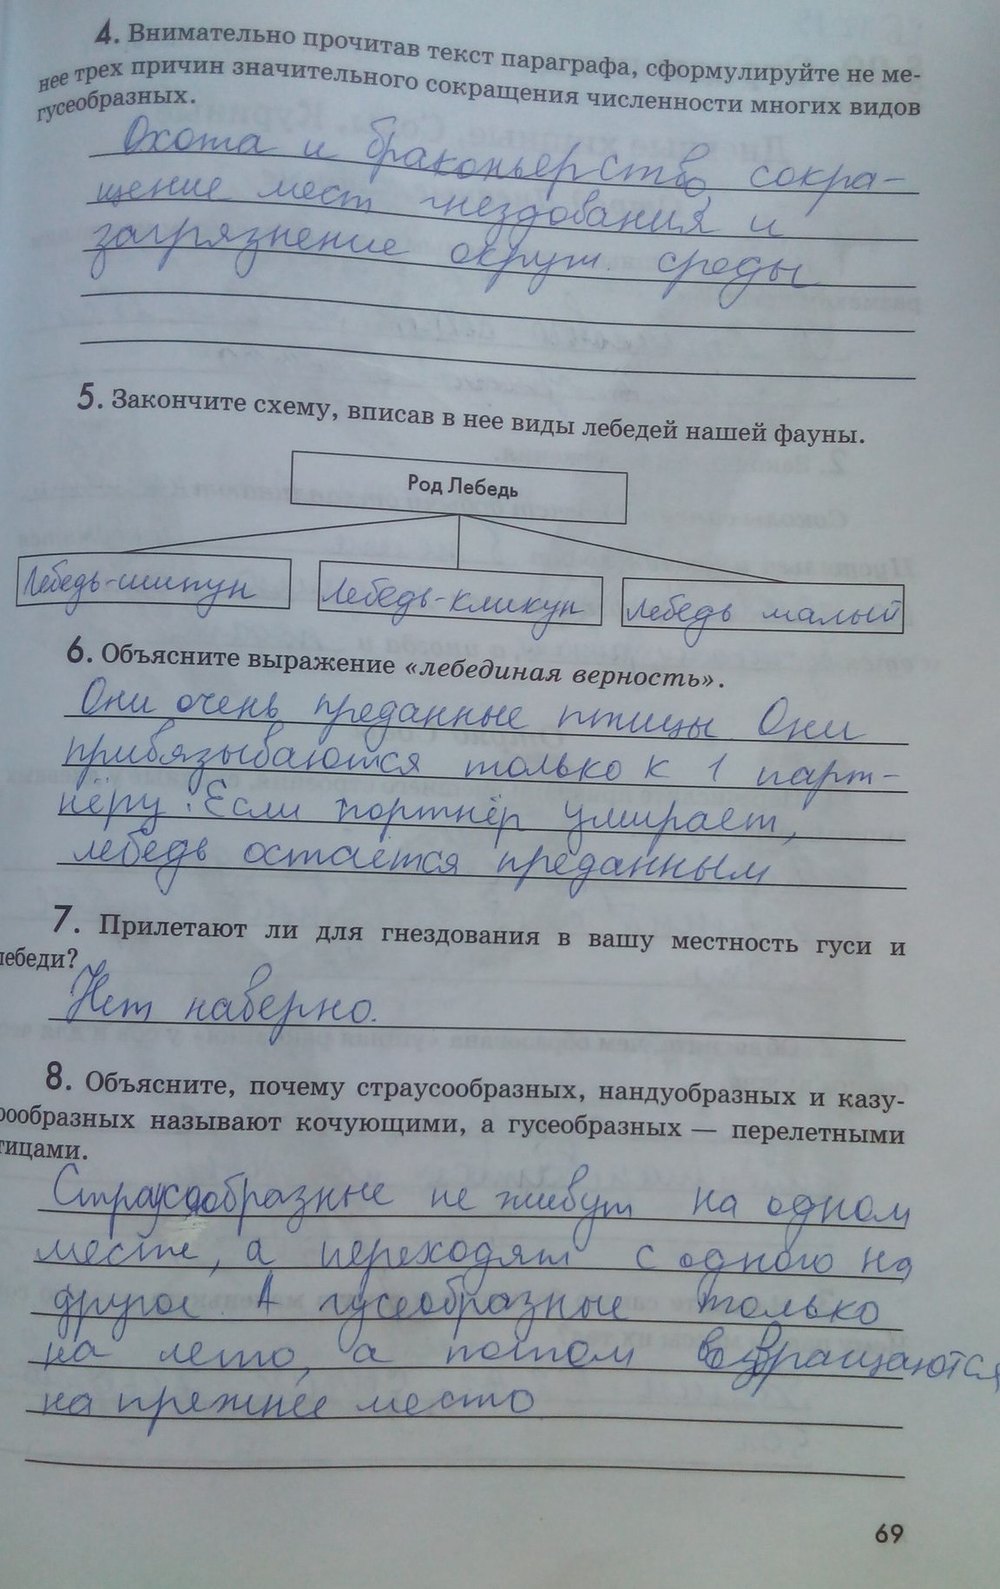 4. Внимательно прочитав текст параграфа, сформулируйте не ме-
нее трех причин значительного сокращения численности многих видов
гусеобразных.
Охота и браконьерство, сокра-
щение мест гнездования и
загрязнение окруж. среды
5. Закончите схему, вписав в нее виды лебедей нашей фауны.
Род Лебедь
Лебедь-шипун Лебедь-кликун Лебедь малый
6. Объясните выражение «лебединая верность».
Они очень преданные птицы. Они
привязываются только к 1 парт-
нёру. Если портнёр умирает,
лебедь остаётся преданным
7. Прилетают ли для гнездования в вашу местность гуси и
лебеди?
Нет наверно.
8. Объясните, почему страусообразных, нандуобразных и казу-
рообразных называют кочующими, а гусеобразных — перелетными
тицами.
Страусообразные не живут на одном
месте, а переходят с одного на
другое. А гусеобразные только
на лето, а потом возвращаются
на прежнее место
69